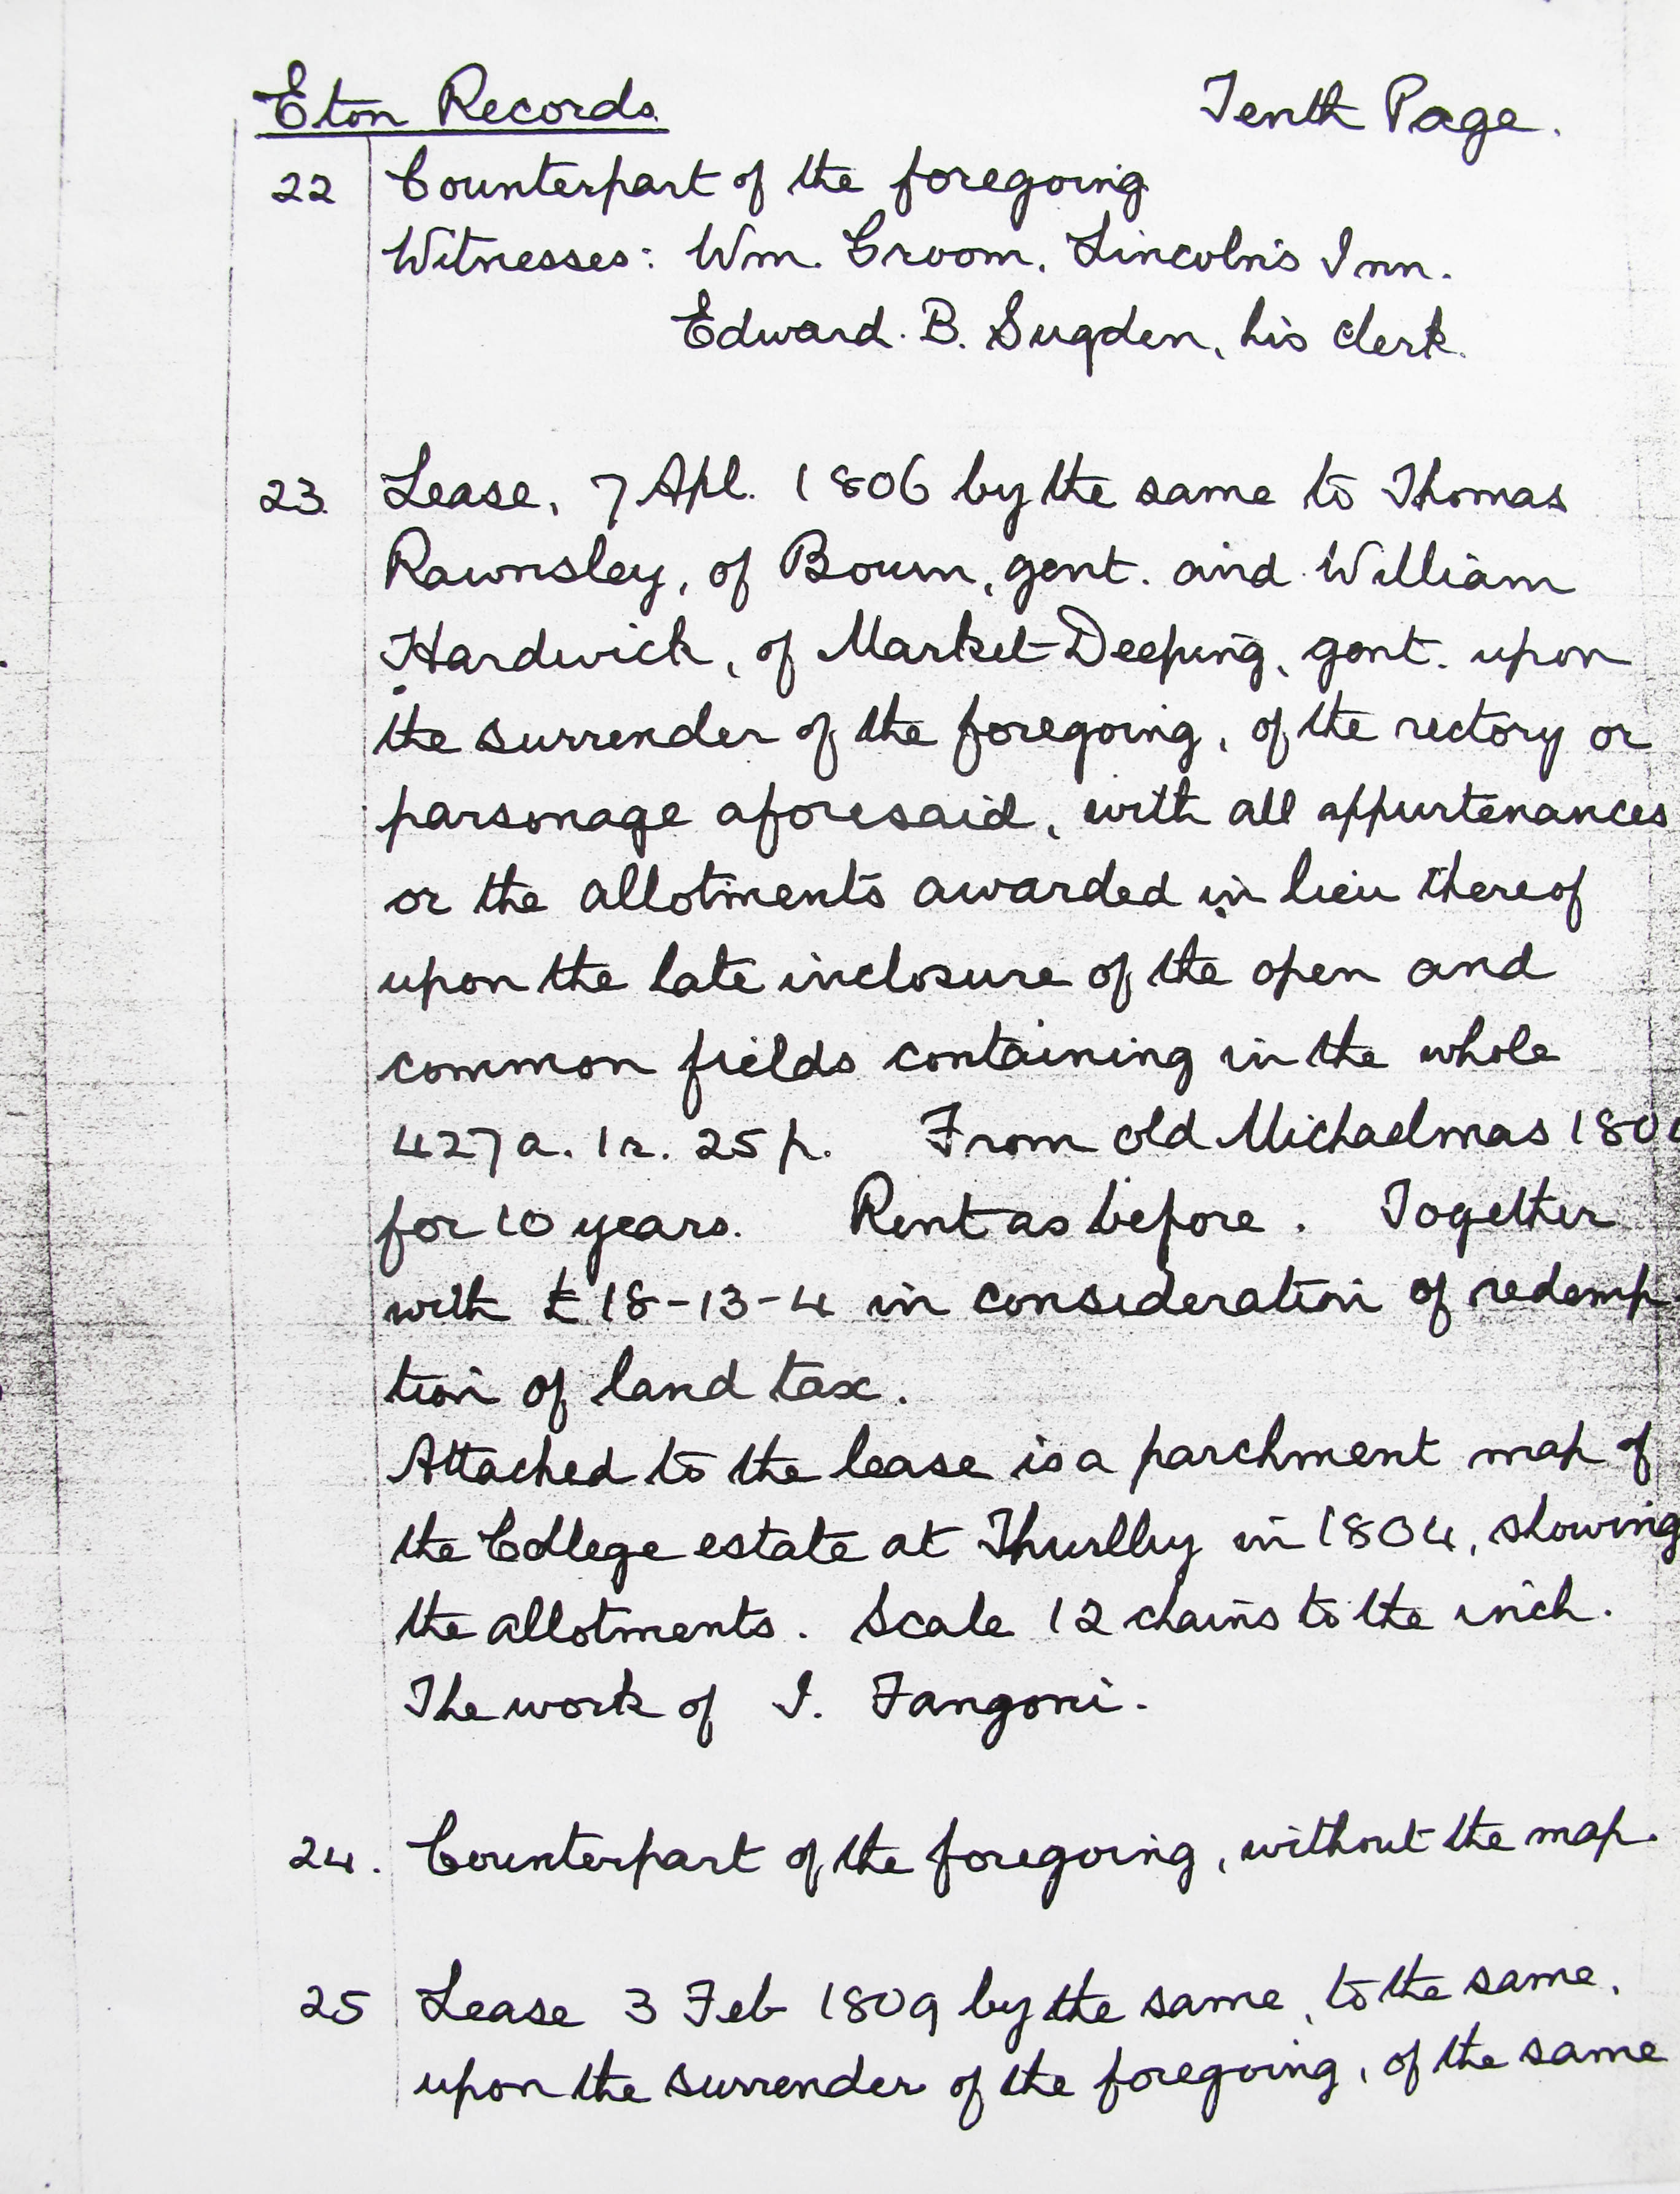 Eton Records. Tenth Page.
22 Counterpart of the foregoing
Witnesses: Wm. Groom, Lincoln's Inn.
Edward. B. Sugden, his clerk.
23 Lease, 7 Apl. 1806 by the same to Thomas
Rawnsley, of Bourn, gent. and William
Hardwick, of Market-Deeping, gent. upon
the surrender of the foregoing, of the rectory or
parsonage aforesaid, with all appurtenances
or the allotments awarded in lieu thereof
upon the late inclosure of the open and
common fields containing in the whole
427a. 1r. 25p. From old Michaelmas
for 10 years. Rent as before. Together
with £18-13-4 in consideration of redemp
tion of land tax.
Attached to the lease is a parchment map of
the College estate at Thurlby in 1804, showing
the allotments. Scale 12 chains to the inch.
The work of I. Fangoni.
24. Counterpart of the foregoing, without the map.
25 Lease 3 Feb 1809 by the same, to the same,
upon the surrender of the foregoing, of the same